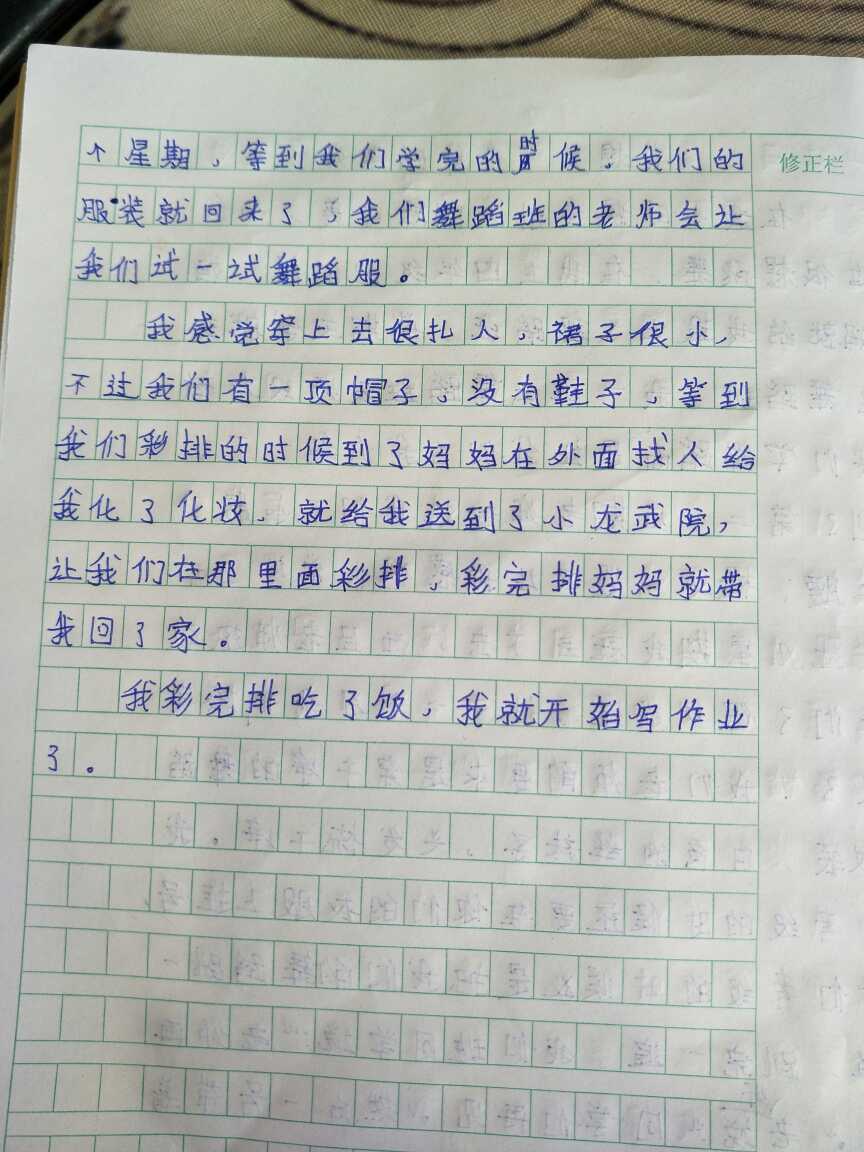 个星期，等到我们学完的时候，我们的
修正栏
服装就回来了，我们舞蹈班的老师会让
我们试一试舞蹈服。
我感觉穿上去很扎人，裙子很小，
不过我们有一顶帽子，没有鞋子，等到
我们彩排的时候到了妈妈在外面找人给
我化了化妆，就给我送到了小龙武院，
让我们在那里面彩排，彩完排妈妈就带
我回了家。
我彩完排吃了饭，我就开始写作业
了。